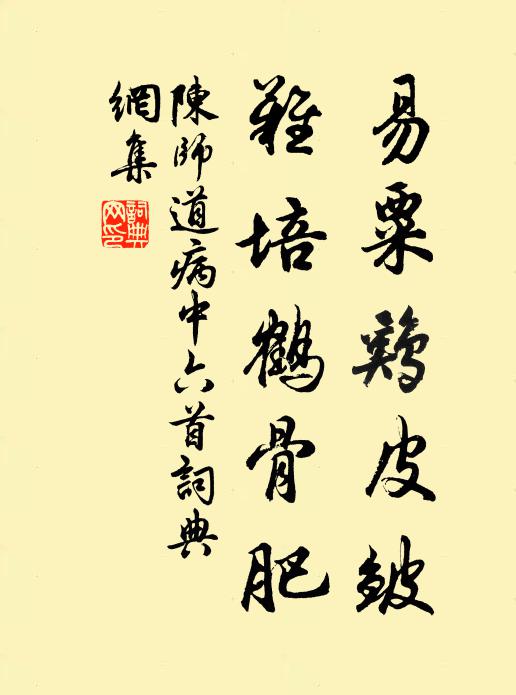 易粟鷄皮皴
難培鶴骨肥
陳師道病中六首詞典
網集
詞典網印